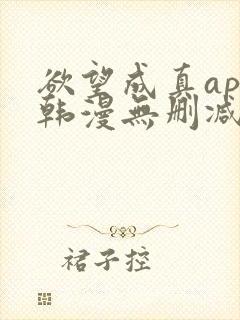 欲望成真ap
韩漫無删减
裙子控